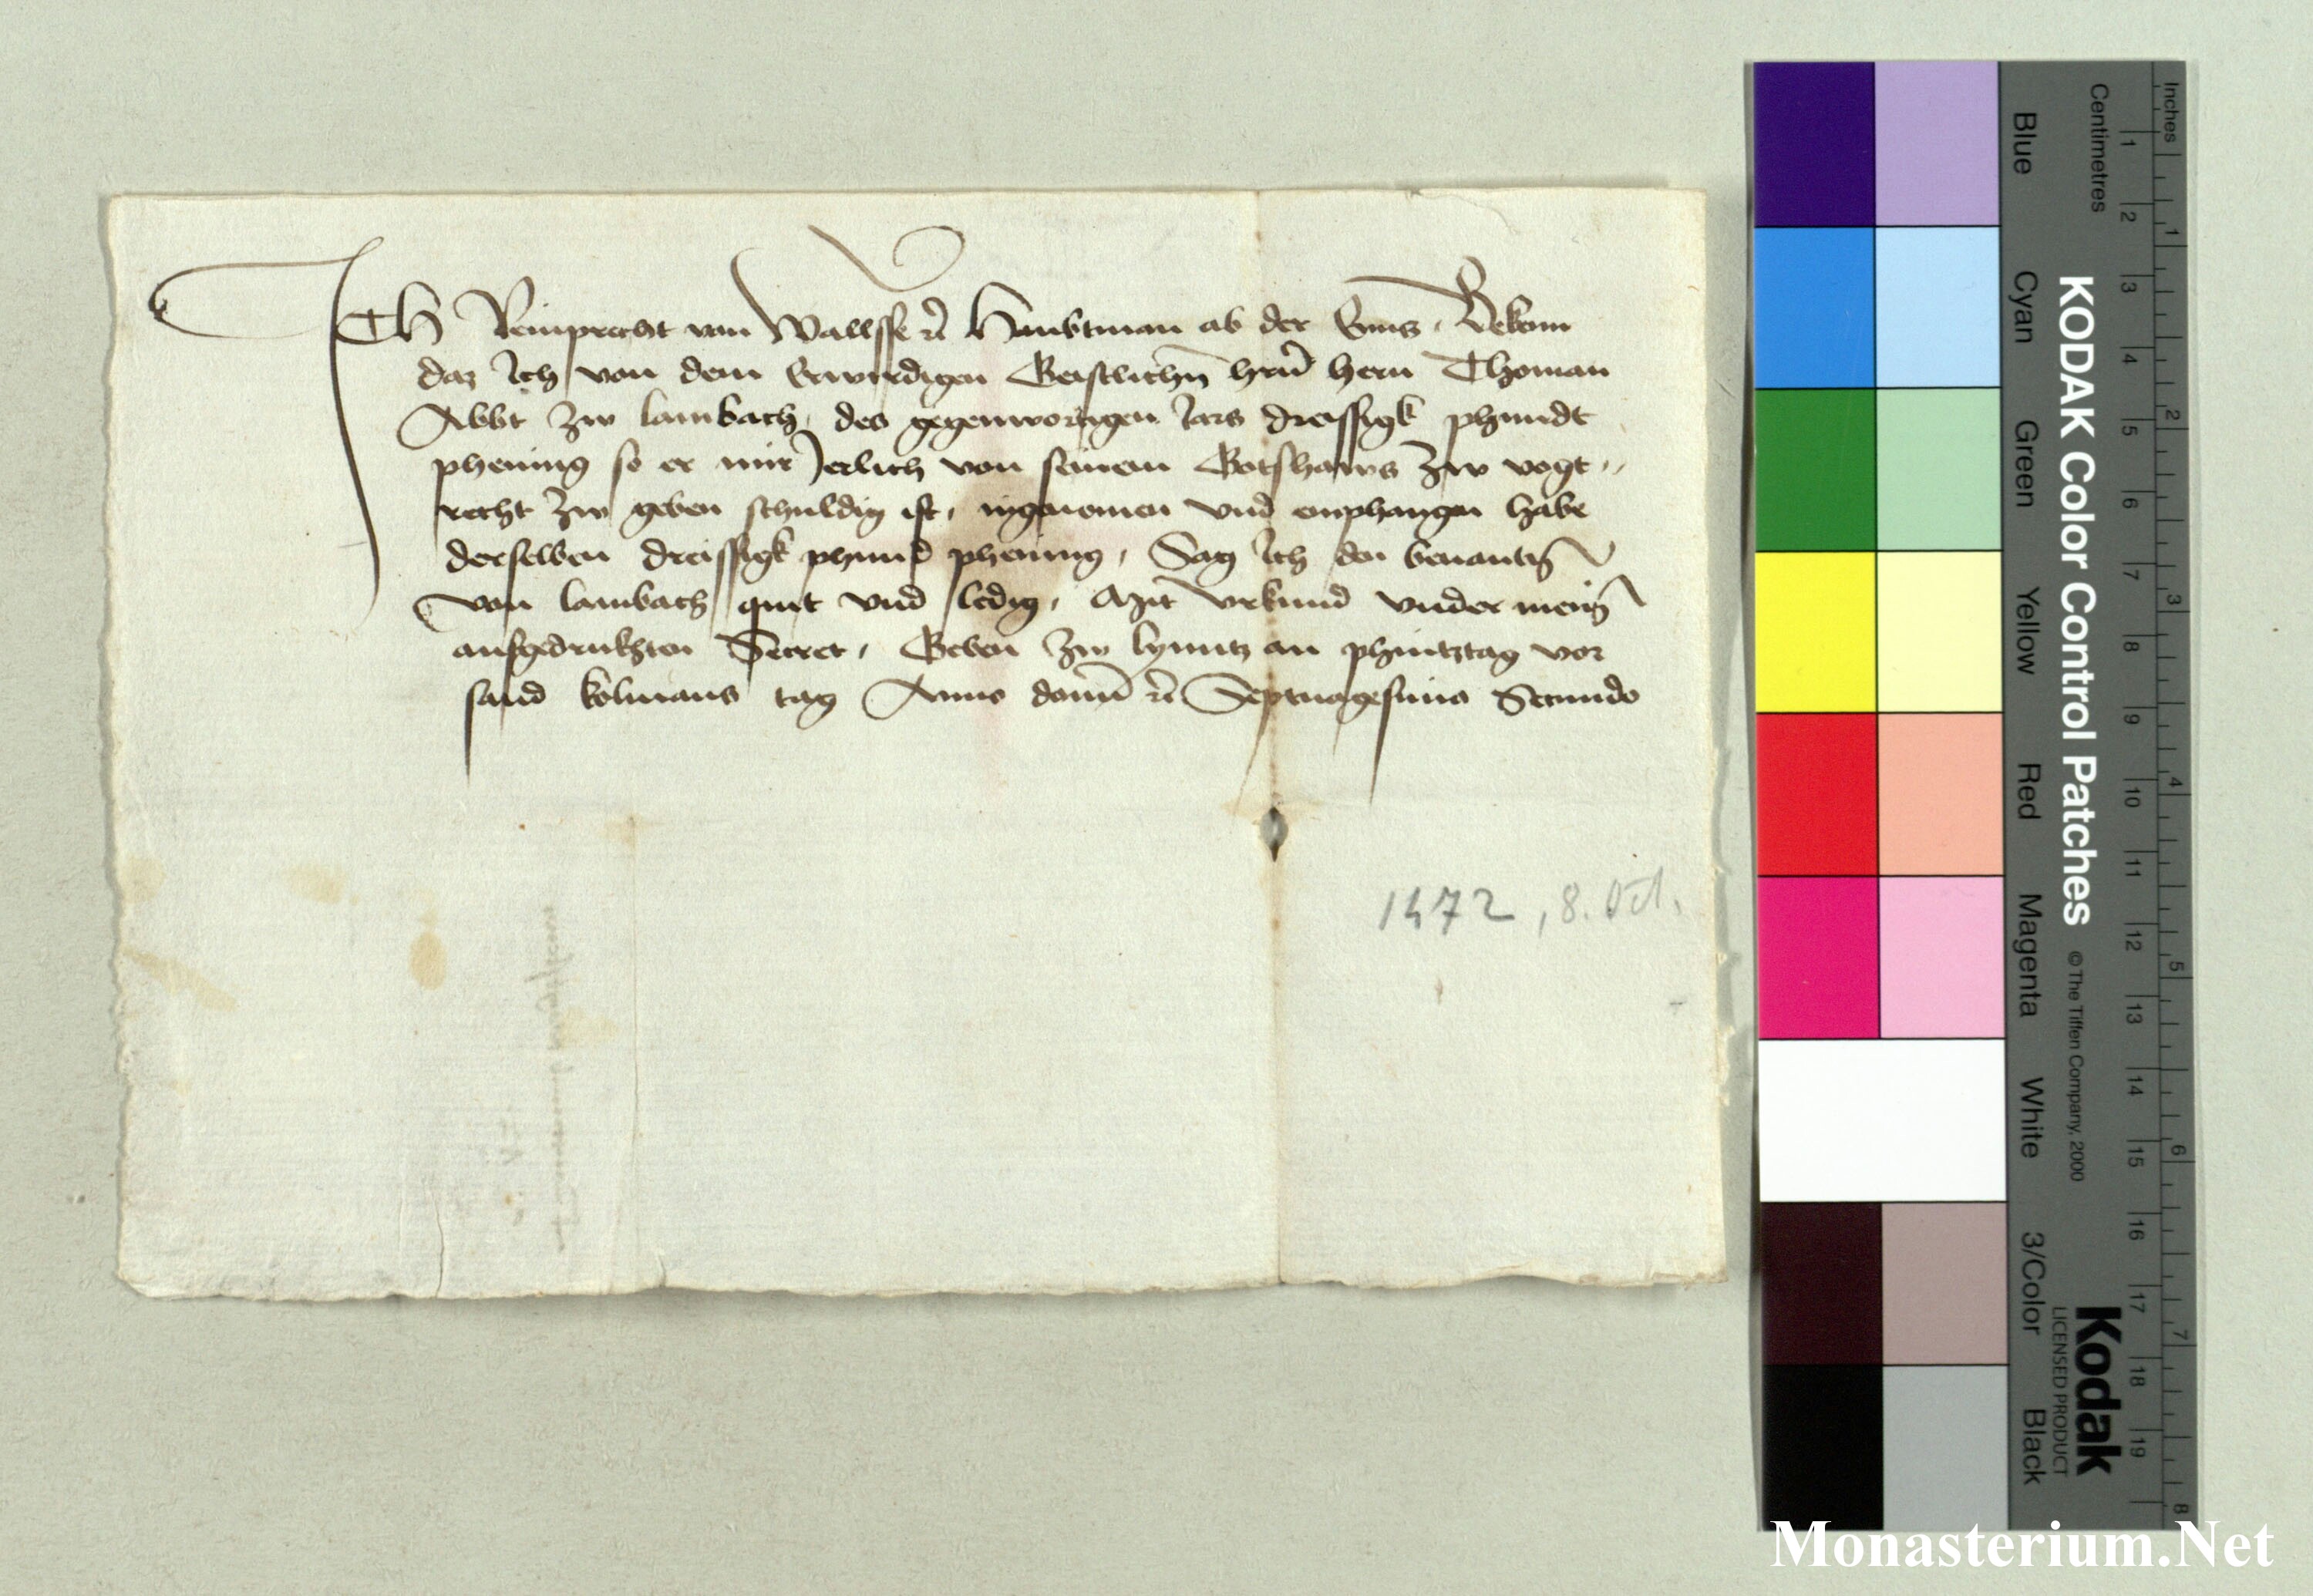 ICH Reimprecht von Wallsse etc Haubtman ob der Enns, Bekenn
daz Ich von dem Erwirdigen Geistlichn hrn hern Thoman
Abbt zw lambach, des gegenwortigen Jars dreissigk phundt
phening so er mir Jerlich von seinem Gotshaws zw vogt,,
recht zw geben schuldig ist, ingenomen vnd emphangen habe
derselben dreissigk phund phening, Sag Ich den benantn
von lambach quit vnd ledig, Mit vrkund vnder meinē
aufgedrukhten Secret, Geben zw lynntz an phintztag vor
sand kolmans tag Anno domī etc Septuagesimo Secundo
1472, 8. Oct.
KODAK Color Control Patches
© The Tiffen Company, 2000
Kodak
LICENSED PRODUCT
Inches
Centimetres
Blue Cyan Green Yellow Red Magenta White 3/Color Black
1 2 3 4 5 6 7 8 9 10 11 12 13 14 15 16 17 18 19
1 2 3 4 5 6 7 8
Monasterium.Net